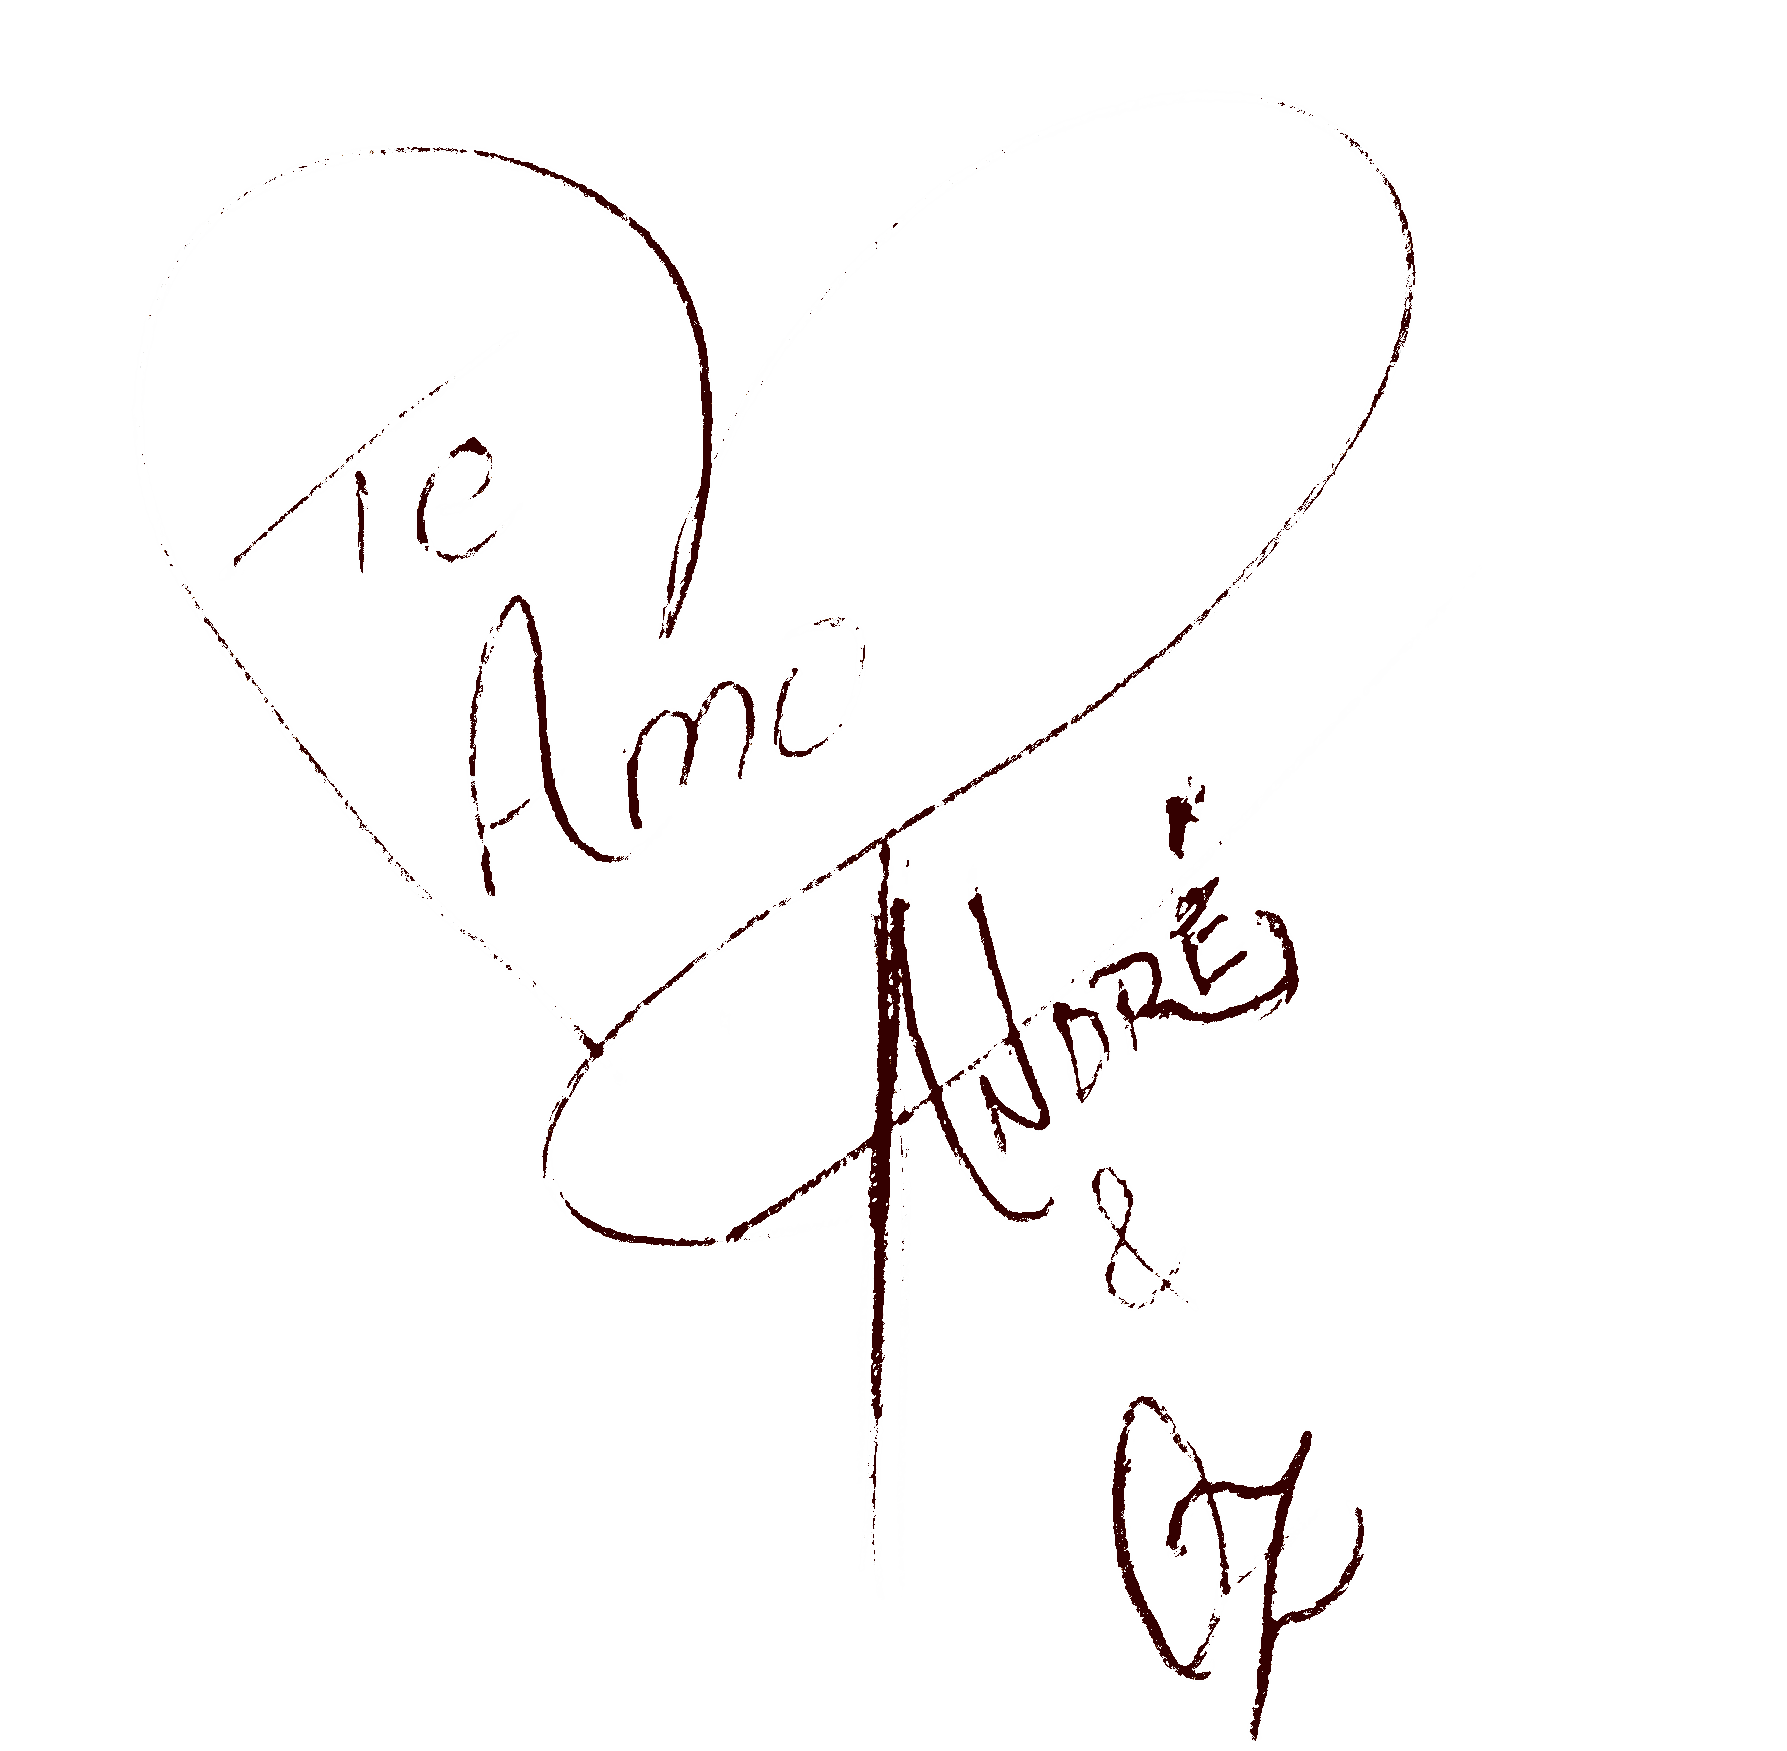 Te
Amo
ANDRÉ
&